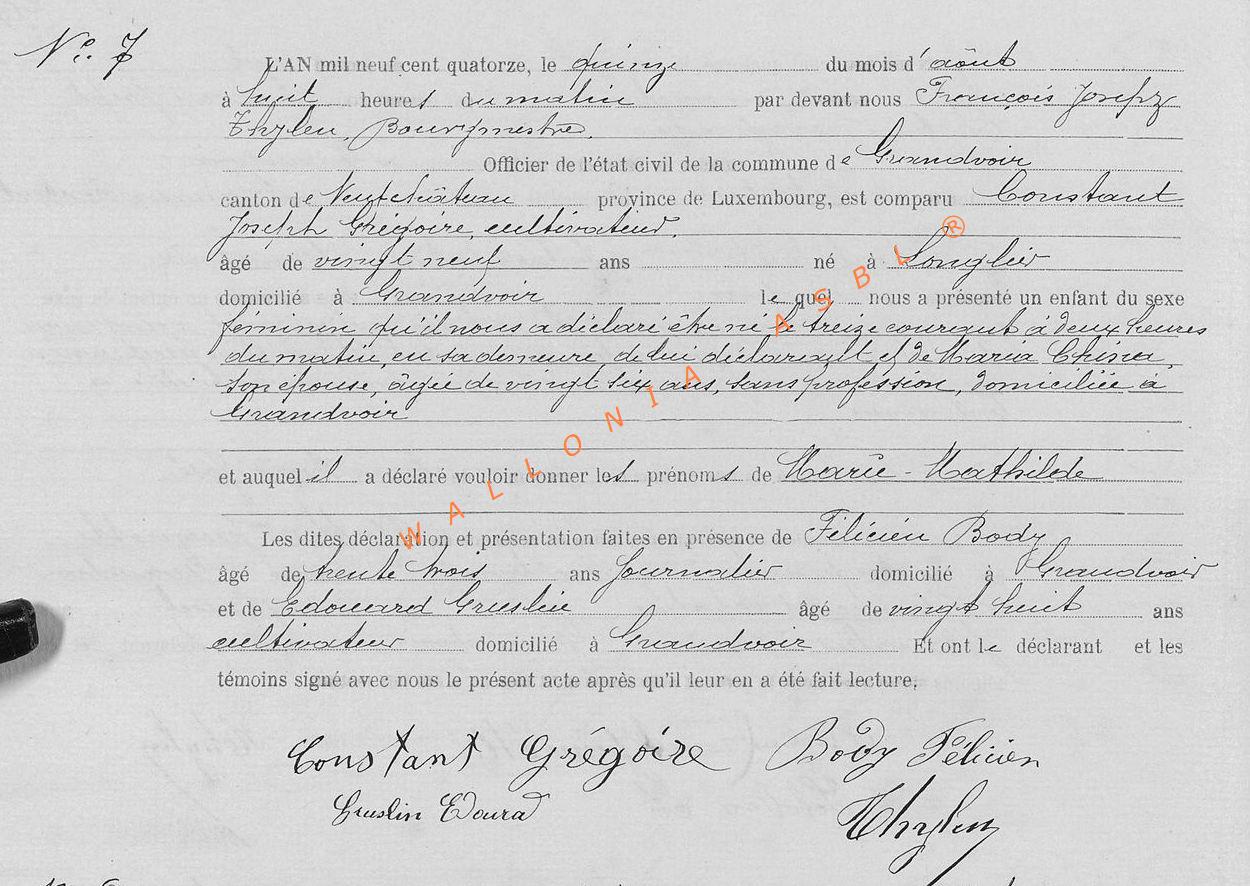 N°. 7
L'AN mil neuf cent quatorze, le quinze du mois d'août
à huit heures du matin par devant nous François Joseph
Thylen, Bourgmestre,
Officier de l'état civil de la commune de Grandvoir
canton de Neufchâteau province de Luxembourg, est comparu Constant
Joseph Grégoire, cultivateur,
âgé de vingt neuf ans né à Longlier
domicilié à Grandvoir lequel nous a présenté un enfant du sexe
féminin qu'il nous a déclaré être né le treize courant à deux heures
du matin, en sa demeure, de lui déclarant et de Maria
son épouse, âgée de vingt six ans, sans profession, domiciliée à
Grandvoir
et auquel il a déclaré vouloir donner les prénoms de Marie-Mathilde
Les dites déclaration et présentation faites en présence de Félicien Body
âgé de trente trois ans Journalier domicilié à Grandvoir
et de Edouard Gruslin âgé de vingt huit ans
cultivateur domicilié à Grandvoir Et ont le déclarant et les
témoins signé avec nous le présent acte après qu'il leur en a été fait lecture.
Constant Grégoire Body Félicien
Gruslin Edourad
Thylen
WALLONIA ASBL ®